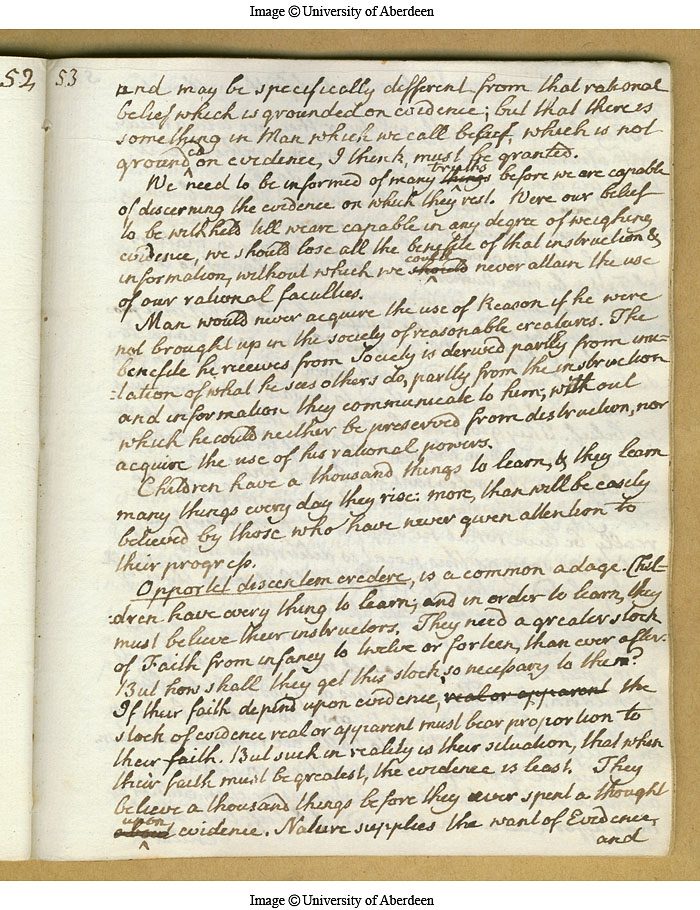 Image © University of Aberdeen
52
53
and may be specifically different from that rational
belief which is grounded on evidence; but that there is
something in Man which we call belief, which is not
grounded on evidence, I think, must be granted.
We need to be informed of many things truths before we are capable
of discerning the evidence on which they rest. Were our belief
to be withheld till we are capable in any degree of weighing
evidence, we should lose all the benefite of that instruction &
information, without which we should could never attain the use
of our rational faculties.
Man would never acquire the use of Reason if he were
not brought up in the society of reasonable creatures. The
benefite he receives from Society is derived partly from imi=
:tation of what he sees others do, partly from the instruction
and information they communicate to him; without
which he could neither be preserved from destruction, nor
acquire the use of his rational powers.
Children have a thousand things to learn, & they learn
many things every day they rise: more, than will be easely
believed by those who have never given attention to
their progress.
Opportet discentem credere, is a common adage. Chil-
:dren have every thing to learn; and in order to learn, they
must believe their instructors. They need a greater stock
of Faith from infancy to twelve or forteen, than ever after.
But how shall they get this stock so necessary to them?
If their faith depend upon evidence, real or apparent the
stock of evidence real or apparent must bear proportion to
their faith. But such in reality is their situation, that when
their faith must be greatest, the evidence is least. They
believe a thousand things before they ever spent a thought
about upon evidence. Nature supplies the want of Evidence,
and
Image © University of Aberdeen